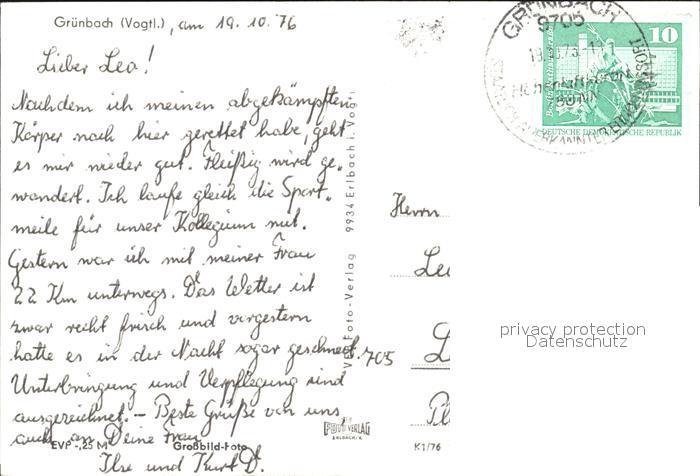 Grünbach (Vogtl.), am 19. 10. 76
Lieber Leo!
Nachdem ich meinen abgekämpften
Körper nach hier gerettet habe, geht
es mir wieder gut. Fleißig wird ge-
wandert. Ich laufe gleich die Sport-
meile für unser Kollegium mit.
Gestern war ich mit meiner Frau
22 Km unterwegs. Das Wetter ist
zwar recht frisch und vorgestern
hatte es in der Nacht sogar geschneit.
Unterbringung und Verpflegung sind
ausgezeichnet. – Beste Grüße von uns
auch an Deine Frau
Ilse und Kurt D.
EVP -,25 M
Großbild-Foto
VEB Foto-Verlag 9934 Erlbach i. Vogtl.
FOTO VERLAG
ERLBACH/V.
K1/76
GRÜNBACH
9705
10
DEUTSCHE DEMOKRATISCHE REPUBLIK
Herrn
705
privacy protection
Datenschutz